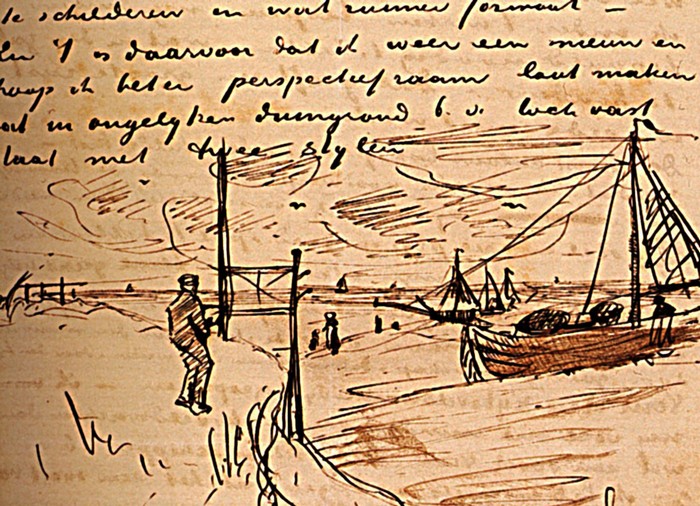 te schilderen en wat ruimer formaat —
En 't is daarvoor dat ik weer een nieuw en
hoop ik beter perspectiefraam laat maken
dat in ongelyken duingrond b.v. toch vast
staat met twee stylen